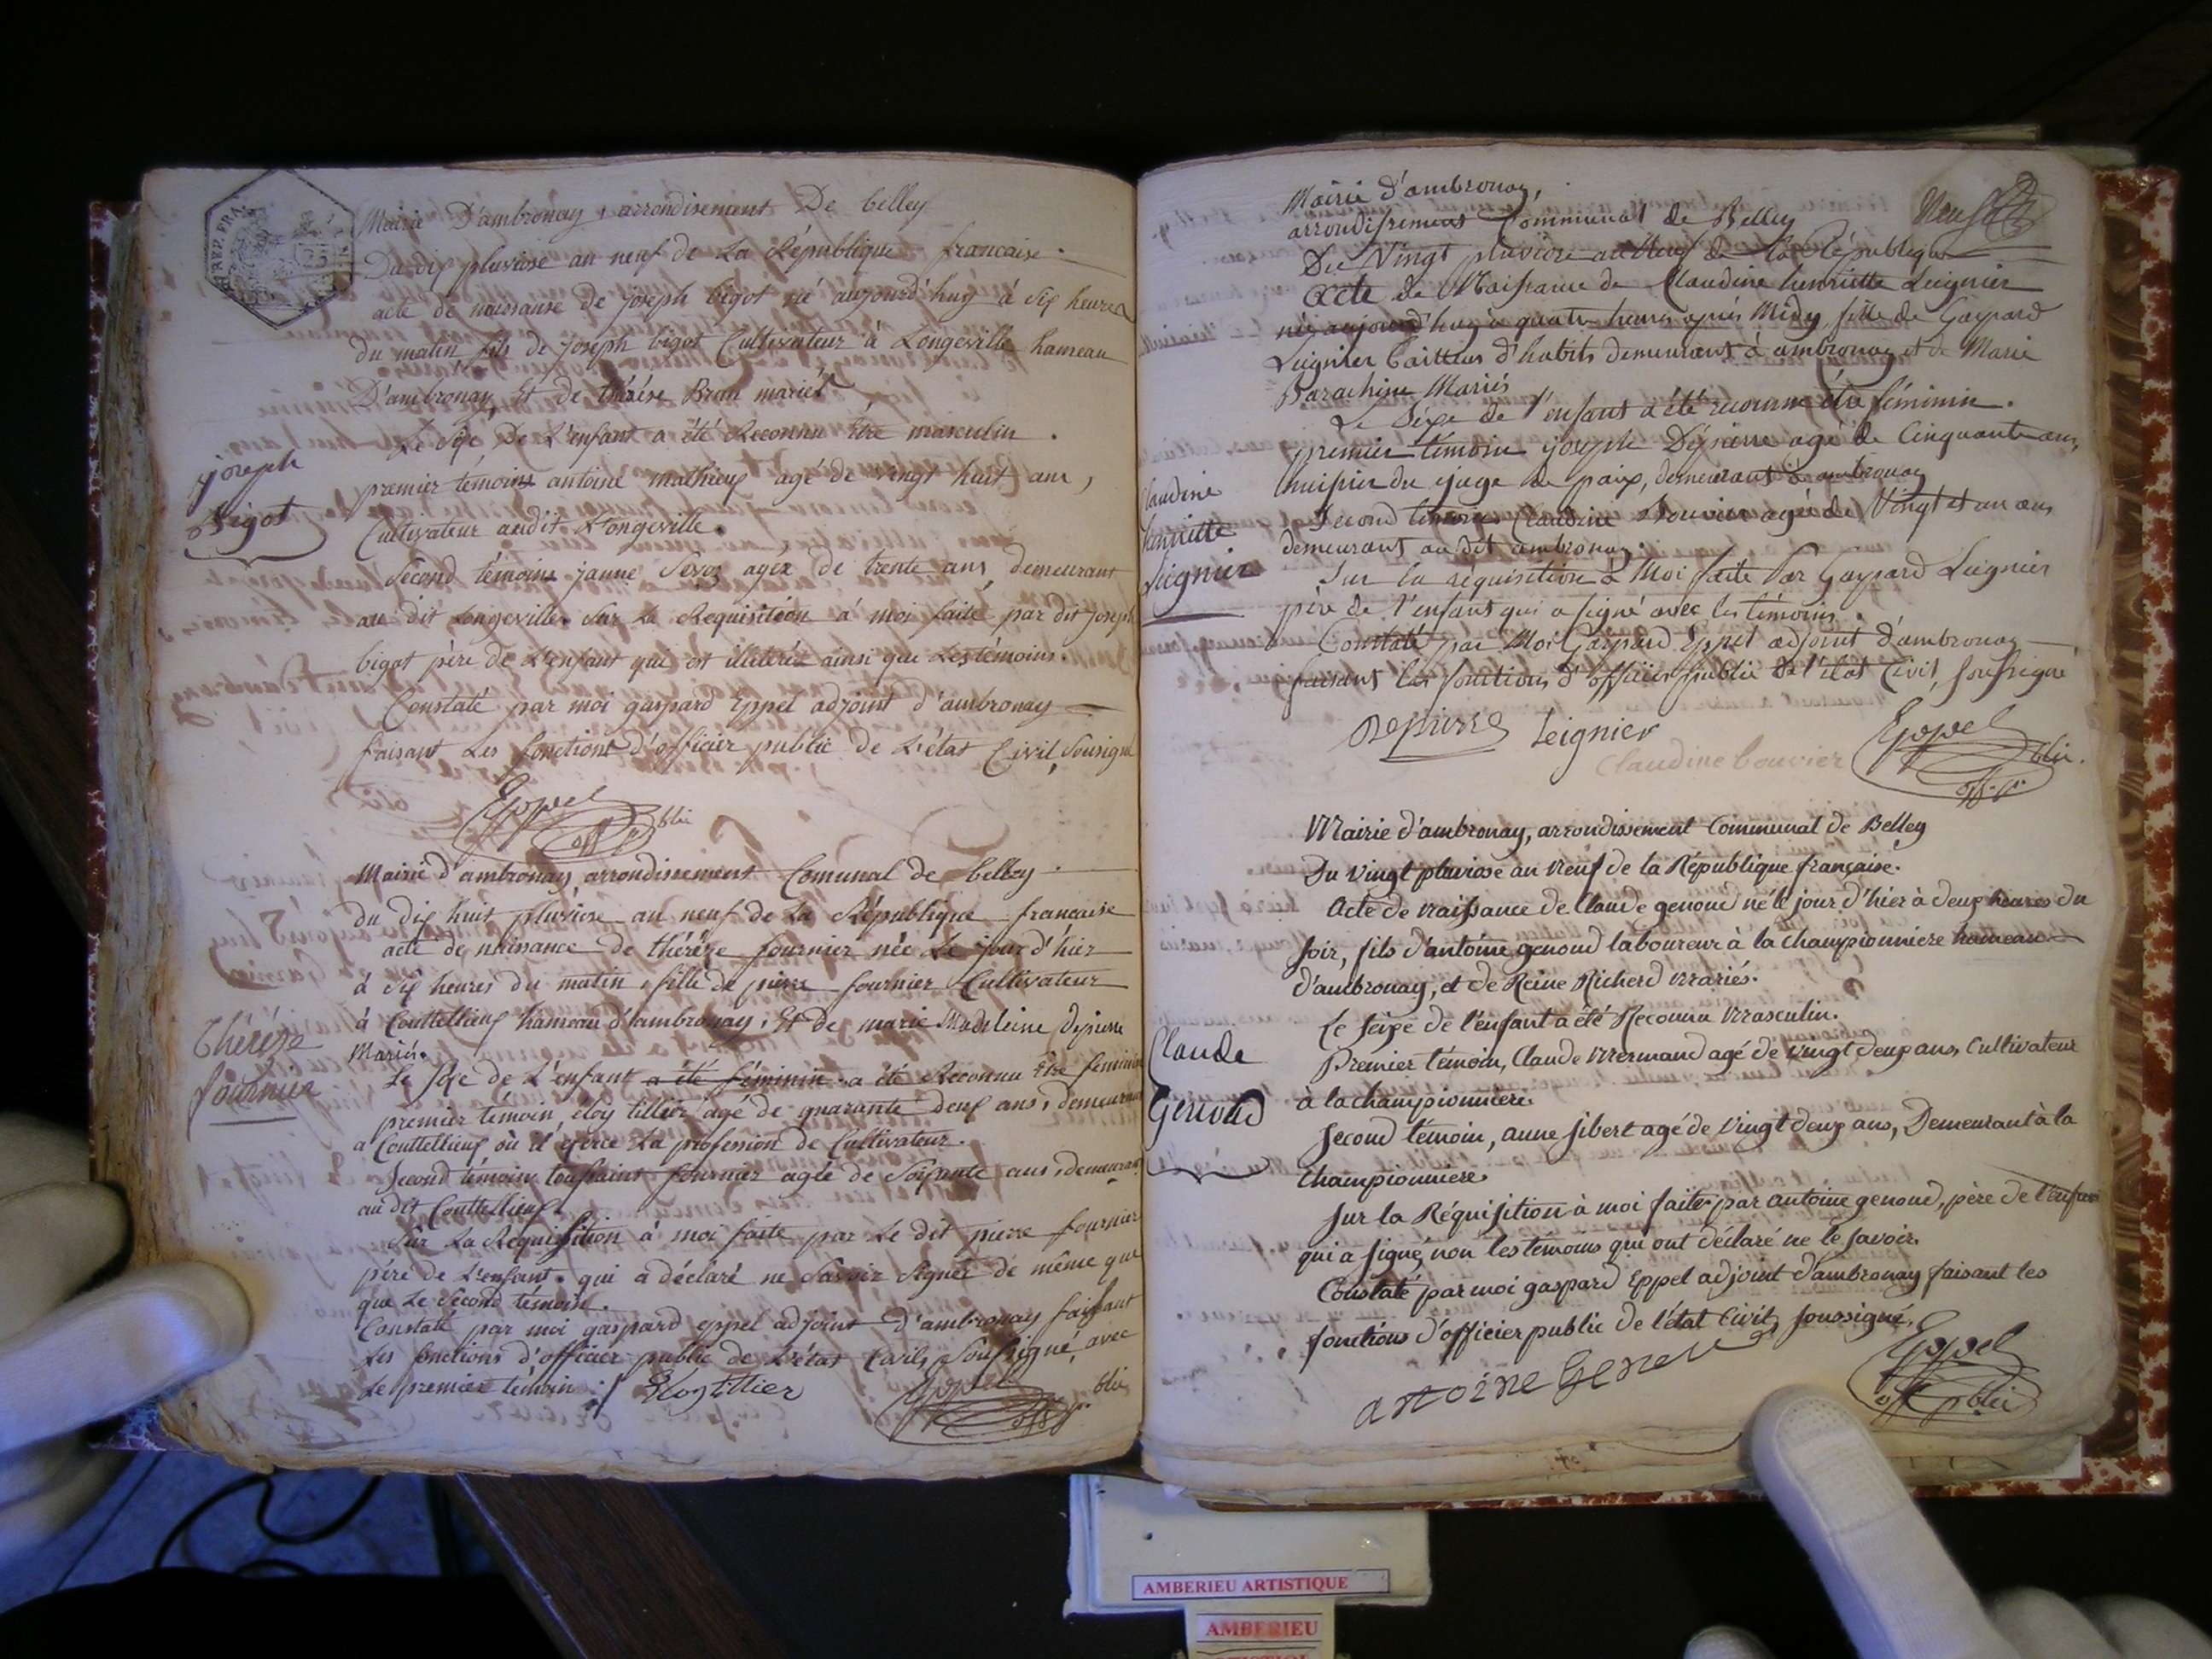 REP. FRA.
25
Mairie D'ambronay, arrondisement De belley
Du dix pluviose an neuf de La République francaise.
acte de naissanse de joseph bigot né aujourd'huy à Six heures
du matin fils de joseph bigot Cultivateur à Longeville hameau
D'ambronay, Et de thérése Brun mariés
Le Sexe De L'enfant a été Reconnu Être masculin.
joseph
Bigot
premier témoins antoine mathieux agé de vingt huit ans,
Cultivateur audit Longeville.
Second témoins janne agée de trente ans, demeurant
au dit Longeville Sur La Requisitéon à moi faite par dit joseph
bigot père de L'enfant qui est illitéréz ainsi que Les témoins.
Constaté par moi gaspard Eppel adjoint d'ambronay
faisant Les fonctions d'officier public de L'état Civil, Sousigné
Eppel
off. p. blic
Mairie d'ambronay, arrondissement Comunal de belley.
du dix huit pluviose an neuf de La République francaise
acte de naissance de thérèze fournier née Le jour d'hier
à Six heures du matin, fille de pierre fournier Cultivateur
à Couttelieux hameau d'ambronay, Et de marie Madeleine Depierre
Mariés.
Thérèze
fournier
Le sexe de L'enfant a été féminin a été Reconnu Être féminin
premier témoin, éloy tillier agé de quarante deux ans, demeurant
a Couttelieux, où il éxerce La profession de Cultivateur.
Second témoin toussaint fournier agée de Soixante ans, demeurant
au dit Couttelieux.
Sur La Requisition à moi faite par Le dit pierre fournier
père de L'enfant. qui a déclaré ne Savoir Signer de même que
que Le Second témoin.
Constaté par moi gaspard eppel adjoint d'ambronay faisant
Les fonctions d'officier public de L'état Civil, Soussigné, avec
Le premier témoin. Eloy tillier
Eppel
off. p. blic
Mairie d'ambronay,
arrondissement Communal de Belley
Neuf
Du Vingt pluviose an Neuf de la République
Acte de Naissance de Claudine henriette Leignier
née aujourd'huy à quatre heures après Midy, fille de Gaspard
Leignier tailleur d'habits demeurant à ambronay, et de Marie
Barachine Mariés
Le Séxe de l'enfant a été reconnu être féminin.
premier témoin joseph Dépierre agé de Cinquante ans,
huissier du juge de paix, demeurant à ambronay
Claudine
henriette
Leignier
Second témoin Claudine Bouvier agée de Vingt et un ans
demeurant au dit ambronay.
Sur la réquisition à Moi faite Par Gaspard Leignier
père de l'enfant qui a signé avec les témoins.
Constaté par Moi Gaspard Eppel adjoint d'ambronay
faisant les fonctions d'officier public de l'état Civil, soussigné
Depierre Leignier
Claudine bouvier
Eppel
off. p. blic.
Mairie d'ambronay, arrondissement Communal de Belley
Du vingt pluviose an neuf de la République française.
Acte de naissance de Claude genoud né le jour d'hier à deux heures du
soir, fils d'antoine genoud laboureur à la championniere hameau
d'ambronay, et de Reine Richerd mariés.
Le sexe de l'enfant a été Reconnu masculin.
Claude
Genoud
Premier témoin, Claude Mermand agé de vingt deux ans, Cultivateur
à la championniere.
Second témoin, anne jibert agé de vingt deux ans, Demeurant à la
Championniere.
Sur la Réquisition à moi faite par antoine genoud, père de l'enfant
qui a signé, non les témoins qui ont déclaré ne le savoir.
Constaté par moi gaspard Eppel adjoint d'ambronay faisant les
fonctions d'officier public de l'état Civil, soussigné.
Eppel
off. pblic
AMBERIEU ARTISTIQUE
AMBERIEU